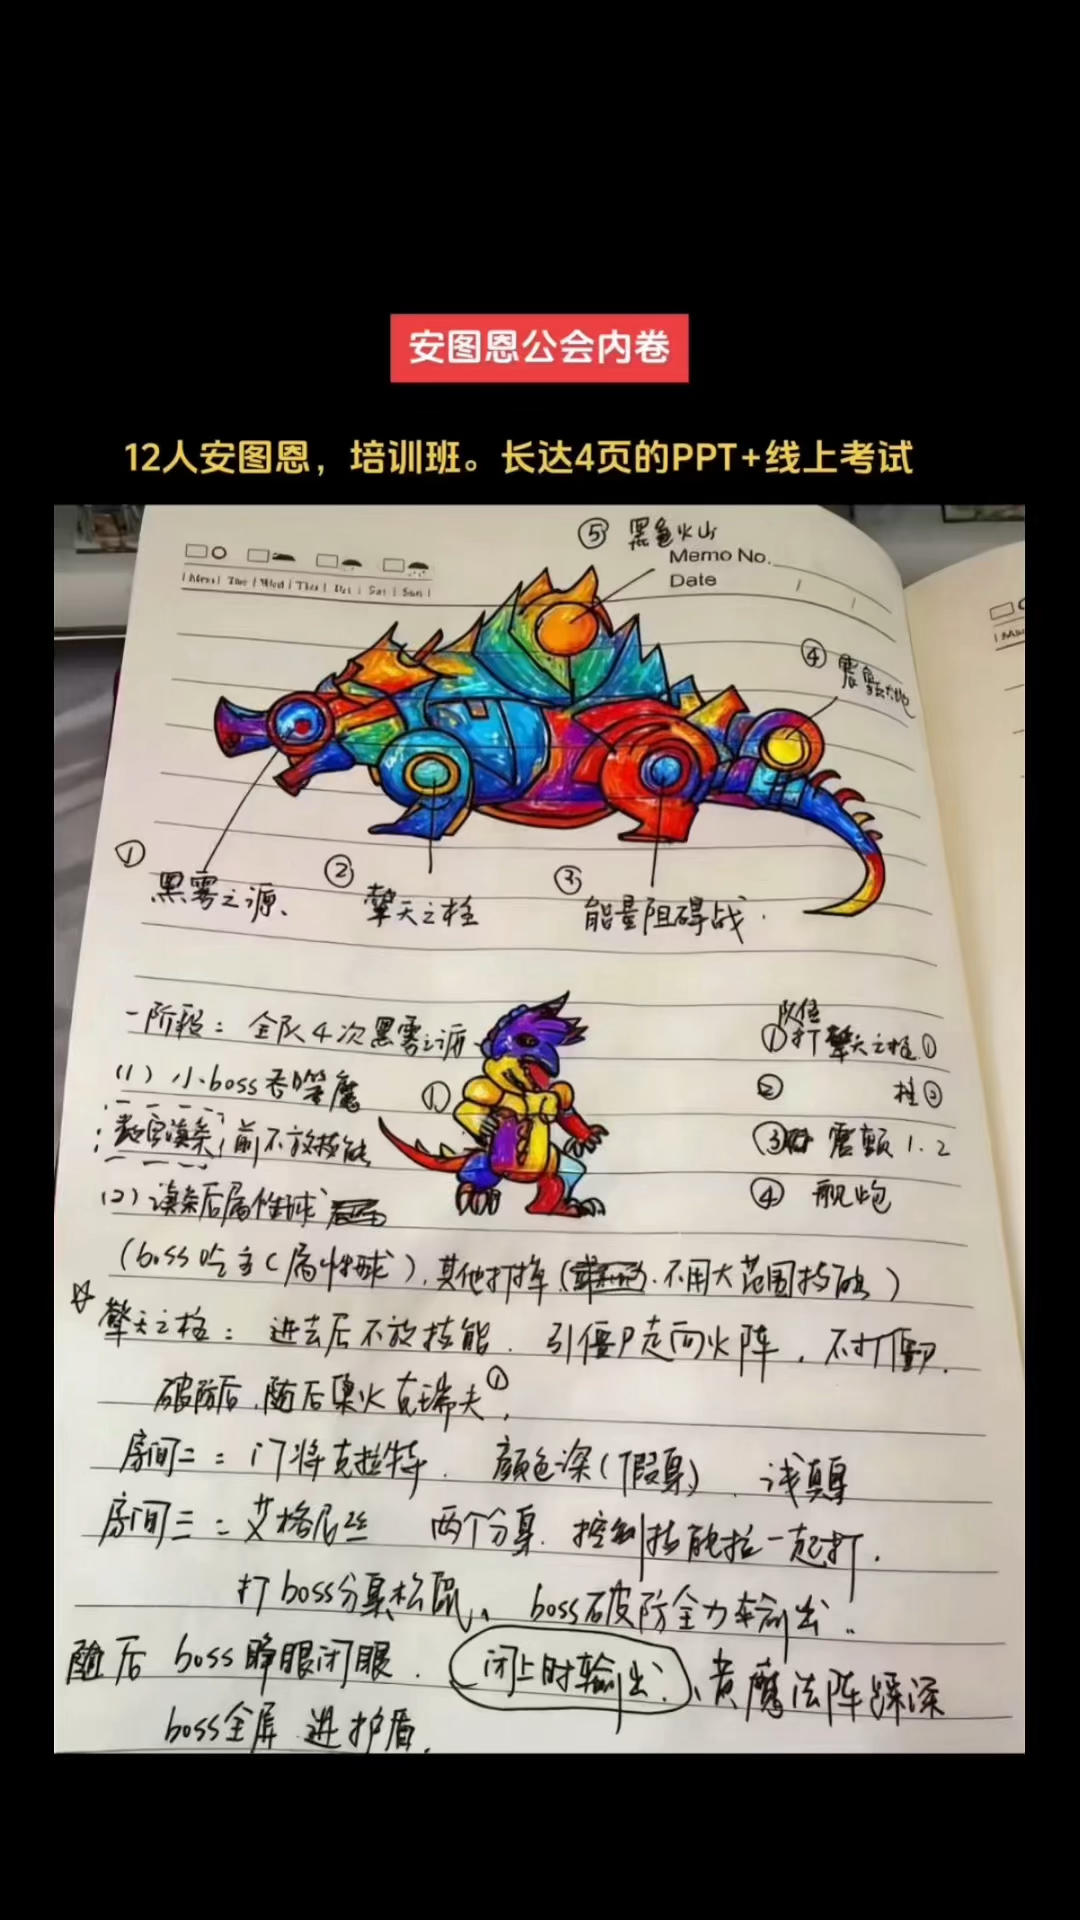 安图恩公会内卷
12人安图恩，培训班。长达4页的PPT+线上考试
⑤ 黑色火山
Memo No.
Date
④ 震颤大地
① 黑雾之源、
② 擎天之柱
③ 能量阻碍战.
一阶段：全队4次黑雾之源
(1) 小boss吞噬魔 ①
前不放技能
(2) 后属性球
队伍
①打擎天之柱①
② 柱②
③ 震颤1.2
④ 舰炮
(boss吃 (属性球), 其他打掉 不用大范围技能)
☆ 擎天之柱：进去后不放技能. 引僵尸走向火阵, 不打僵尸.
破防后, 随后集火克瑞夫①,
房间二：门将克拉特. 颜色深(假身). 浅真身
房间三：艾格尼丝 两个分身. 控制技能拉一起打.
打boss分身松鼠、boss破防全力输出..
随后 boss睁眼闭眼. 闭上时输出. 魔法阵踩深
boss全屏 进护盾.